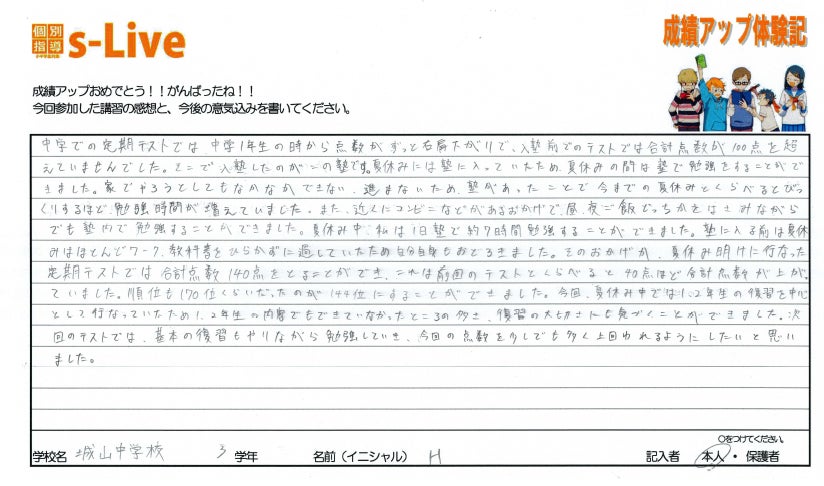 個別
指導
s-Live
成績アップ体験記
成績アップおめでとう！！がんばったね！！
今回参加した講習の感想と、今後の意気込みを書いてください。
中学での定期テストでは、中学1年生の時から点数がずっと右肩下がりで、入塾前でのテストでは合計点数が100点を超
えていませんでした。そこで入塾したのがこの塾です。夏休みには塾に入っていたため、夏休みの間は塾で勉強をすることがで
きました。家でやろうとしてもなかなかできない、進まないため、塾があったことで今までの夏休みとくらべるとびっ
くりするほど、勉強時間が増えていました。また、近くにコンビニなどがあるおかげで、昼、夜ご飯どっちかをはさみながら
でも塾内で勉強することができました。夏休み中、私は1日塾で約7時間勉強することができました。塾に入る前は夏休
みはほとんどワーク、教科書をひらかずに過していたため自分自身もおどろきました。そのおかげか、夏休み明けに行なった
定期テストでは合計点数140点をとることができ、これは前回のテストとくらべると40点ほど合計点数が上がっ
ていました。順位も170位くらいだったのが144位にすることができました。今回、夏休み中では1、2年生の復習を中心
として行なっていたため1、2年生の内容でもできていなかったところの多さ、復習の大切さにも気づくことができました。次
回のテストでは、基本の復習もやりながら勉強していき、今回の点数を少しでも多く上回われるようにしたいと思い
ました。
○をつけてください。
学校名 城山中学校 3 学年 名前（イニシャル） H 記入者 本人・保護者